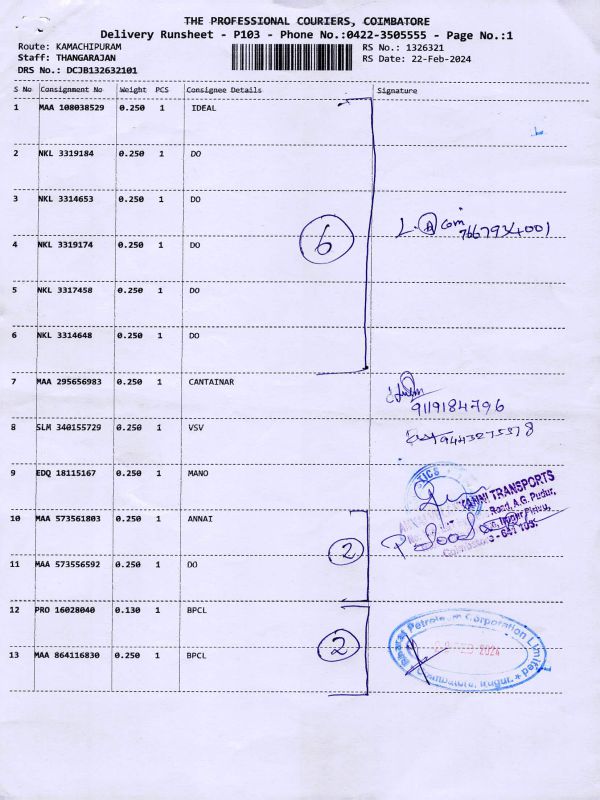 THE PROFESSIONAL COURIERS, COIMBATORE
Delivery Runsheet - P103 - Phone No.:0422-3505555 - Page No.:1
Route: KAMACHIPURAM RS No.: 1326321
Staff: THANGARAJAN RS Date: 22-Feb-2024
DRS No.: DCJB132632101
S No Consignment No Weight PCS Consignee Details Signature
1 MAA 108038529 0.250 1 IDEAL
2 NKL 3319184 0.250 1 DO
3 NKL 3314653 0.250 1 DO
6 7667934001
4 NKL 3319174 0.250 1 DO
5 NKL 3317458 0.250 1 DO
6 NKL 3314648 0.250 1 DO
7 MAA 295656983 0.250 1 CANTAINAR
9119184796
8 SLM 340155729 0.250 1 VSV
9 EDQ 18115167 0.250 1 MANO
TRANSPORTS
Road, A.G. Pudur,
10 MAA 573561803 0.250 1 ANNAI
2
11 MAA 573556592 0.250 1 DO
12 PRO 16028040 0.130 1 BPCL
2
Bharat Petroleum Corporation Limited
2024
Coimbatore, Irugur.
13 MAA 864116830 0.250 1 BPCL